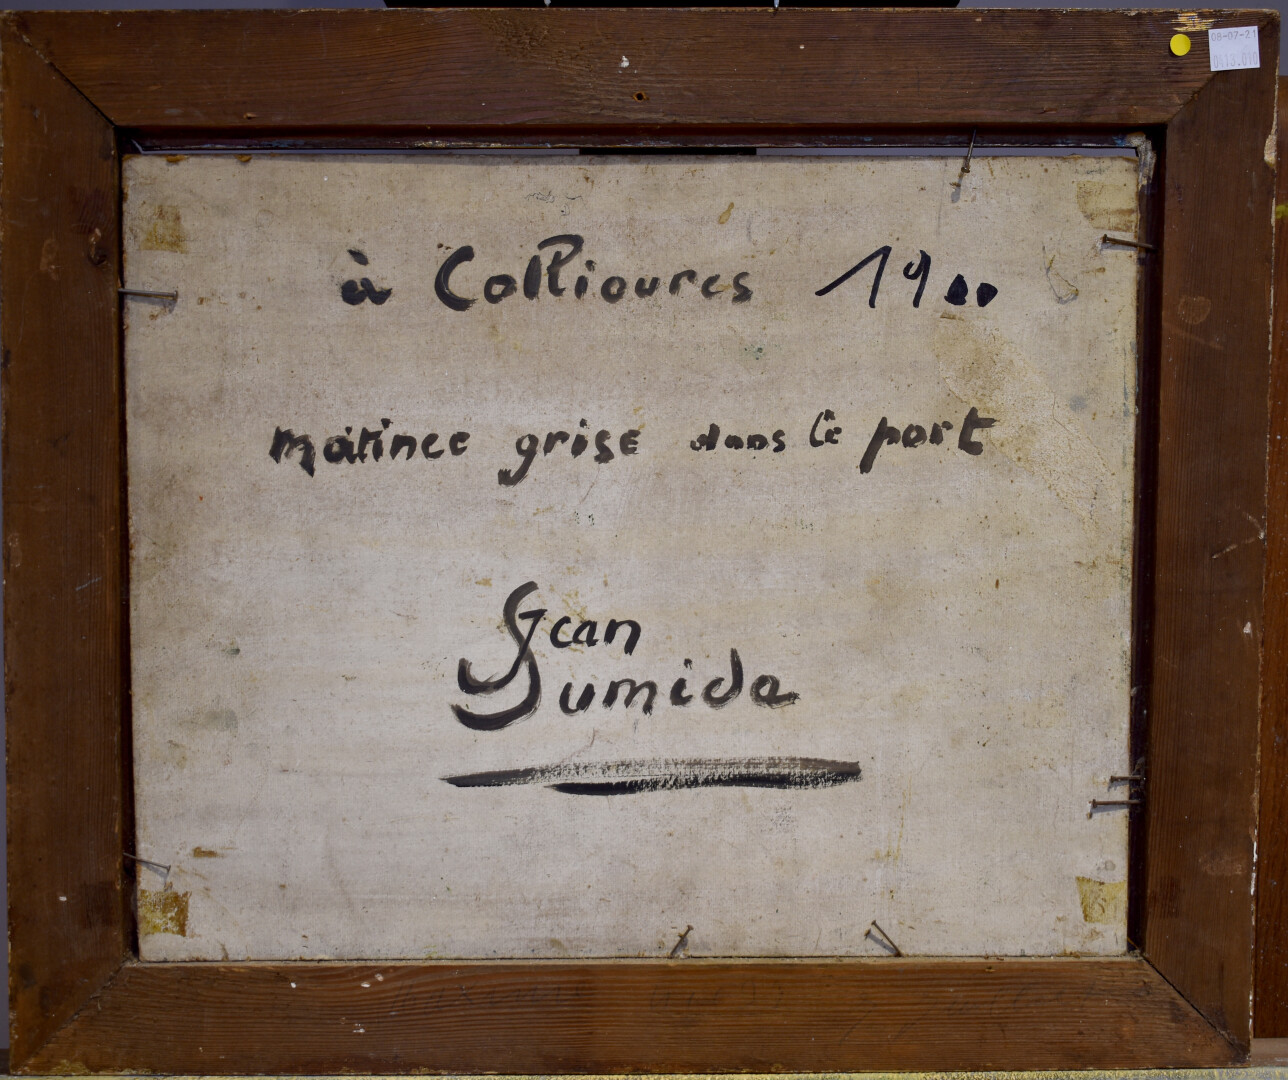 08-07-21
à Collioures 1900
matinee grise dans le port
Jean
Jumida